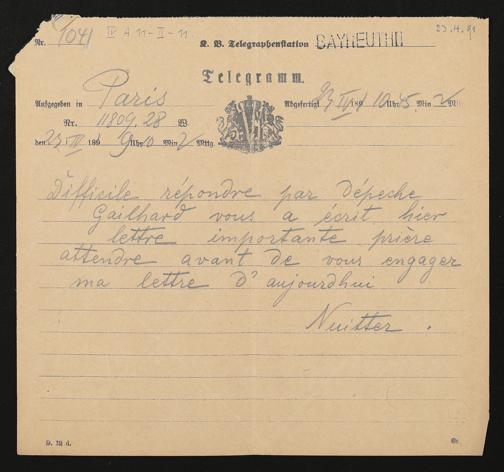 Nr. 1041 IV A 11-II-11. K. B. Telegraphenstation BAYREUTH 23.4.91
Telegramm.
Aufgegeben in Paris Abgefertigt 23/IV 1891 10 Uhr 45 Min
Nr. 11809. 28 W.
den 23. IV 189 9 Uhr 10 Min Mttg.
Difficile répondre par Dépeche
Gailhard vous a écrit hier
lettre importante prière
attendre avant de vous engager
ma lettre d'aujourdhui
Nuitter.
D. 12 d.